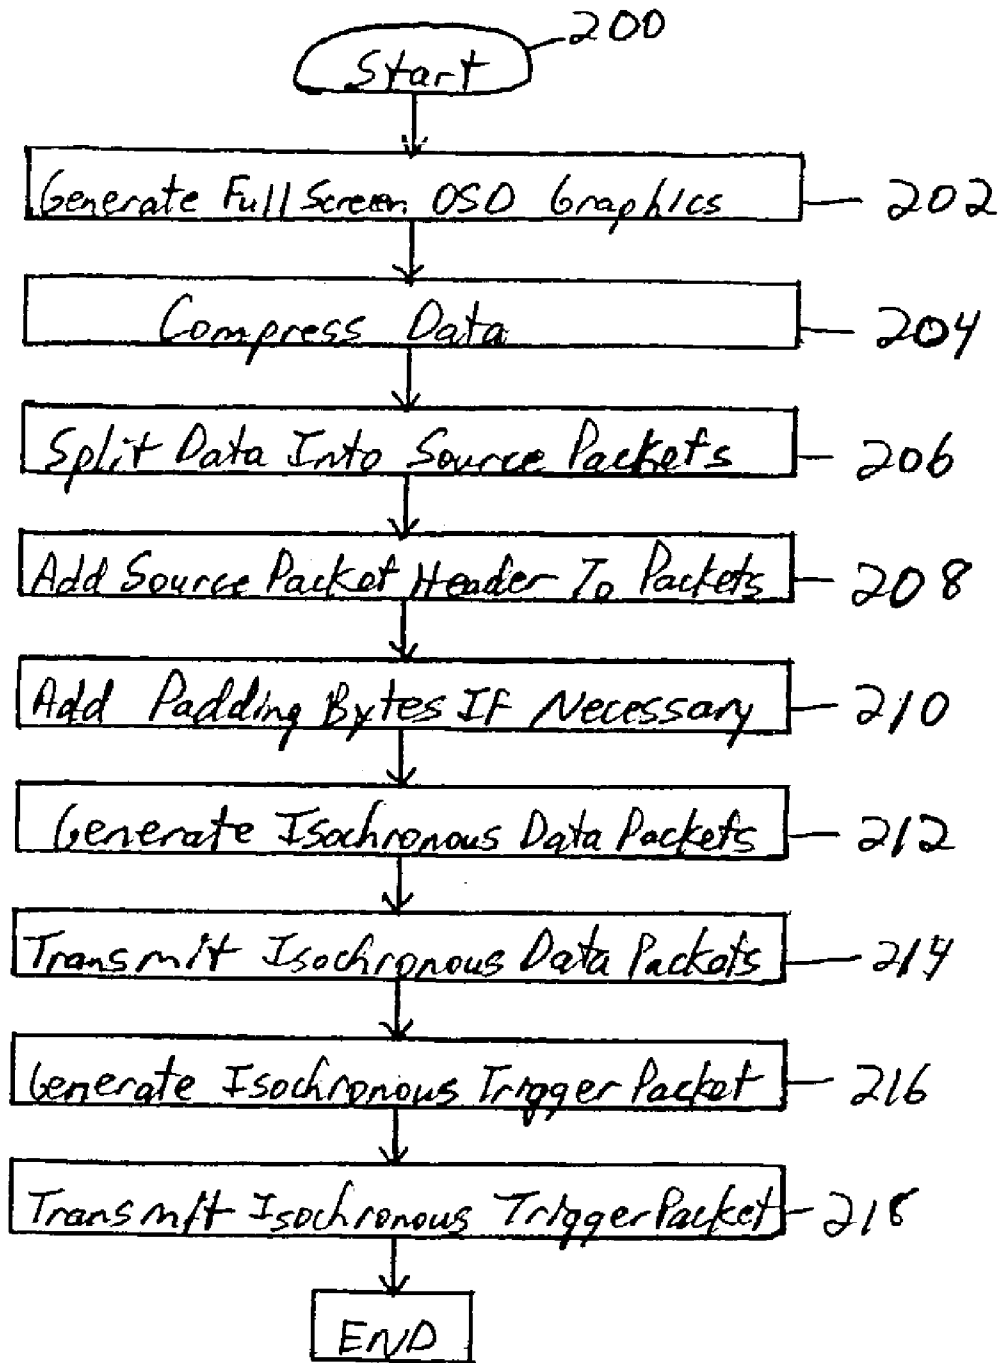 200
Start
Generate Full Screen OSD Graphics 202
Compress Data 204
Split Data Into Source Packets 206
Add Source Packet Header To Packets 208
Add Padding Bytes IF Necessary 210
Generate Isochronous Data Packets 212
Transmit Isochronous Data Packets 214
Generate Isochronous Trigger Packet 216
Transmit Isochronous Trigger Packet 218
END